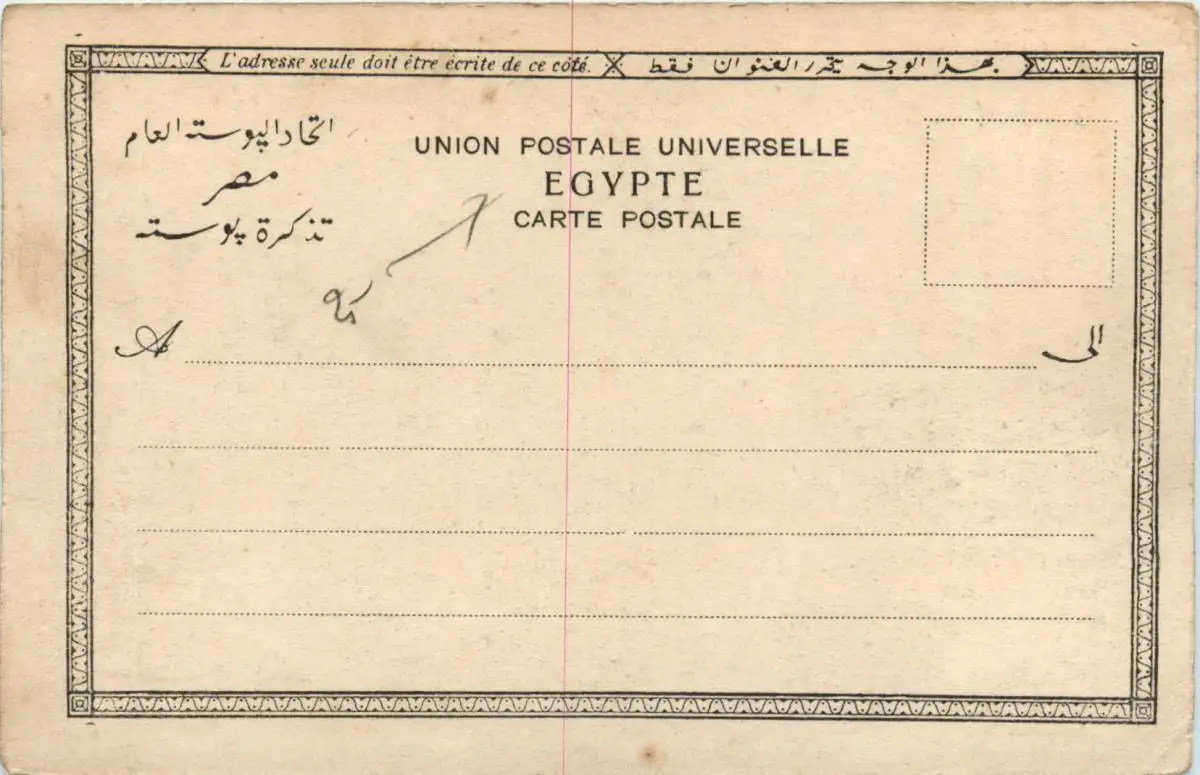 L'adresse seule doit être écrite de ce côté.
بهذا الوجه يتحرر العنوان فقط
اتحاد الپوسته العام
مصر
تذكرة پوسته
UNION POSTALE UNIVERSELLE
EGYPTE
CARTE POSTALE
A
الى